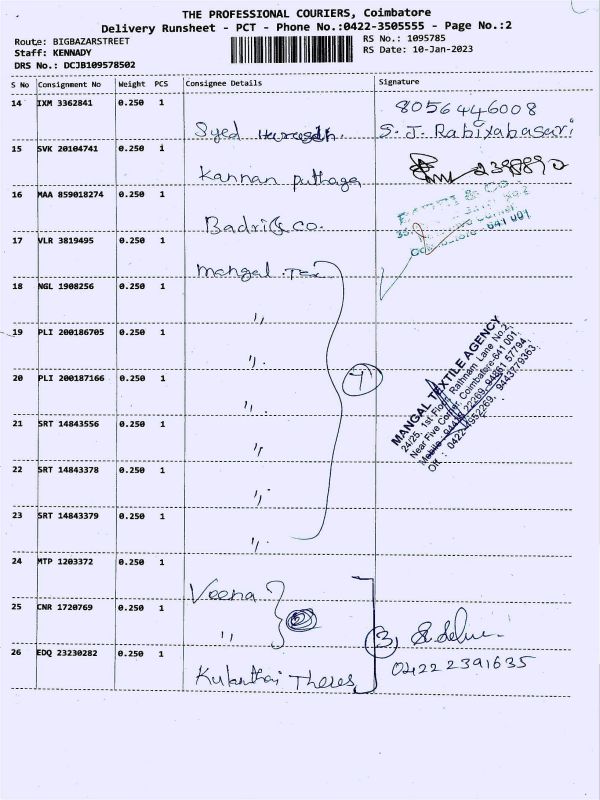 THE PROFESSIONAL COURIERS, Coimbatore
Delivery Runsheet - PCT - Phone No.:0422-3505555 - Page No.:2
Route: BIGBAZARSTREET
Staff: KENNADY
DRS No.: DCJB109578502
RS No.: 1095785
RS Date: 10-Jan-2023
S No Consignment No Weight PCS Consignee Details Signature
14 IXM 3362841 0.250 1 8056446008
Syed S. J. Rabiyabasari
15 SVK 20104741 0.250 1
Kannan puthaga
16 MAA 859018274 0.250 1
Badri & co.
BADRI & Co.
641 001
17 VLR 3819495 0.250 1
mangal Tex
18 NGL 1908256 0.250 1
"
19 PLI 200186705 0.250 1
"
20 PLI 200187166 0.250 1
7
"
21 SRT 14843556 0.250 1
"
22 SRT 14843378 0.250 1
"
23 SRT 14843379 0.250 1
"
MANGAL TEXTILE AGENCY
24/25, 1st Floor, Rathnam Lane No.2,
Near Five Corner, Coimbatore-641 001.
Mobile : 94861 57794
Off : 0422-4952269, 9443779363
24 MTP 1203372 0.250 1
Veena
25 CNR 1720769 0.250 1
" 2
3
26 EDQ 23230282 0.250 1 04222391635
Kulanthai Theres